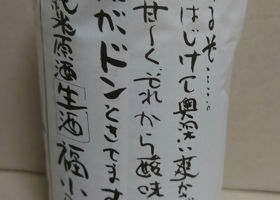 るぞ……。
はじけて奥深い爽か
甘〜くそれから酸味
がドンときてます
純米原酒生酒福小